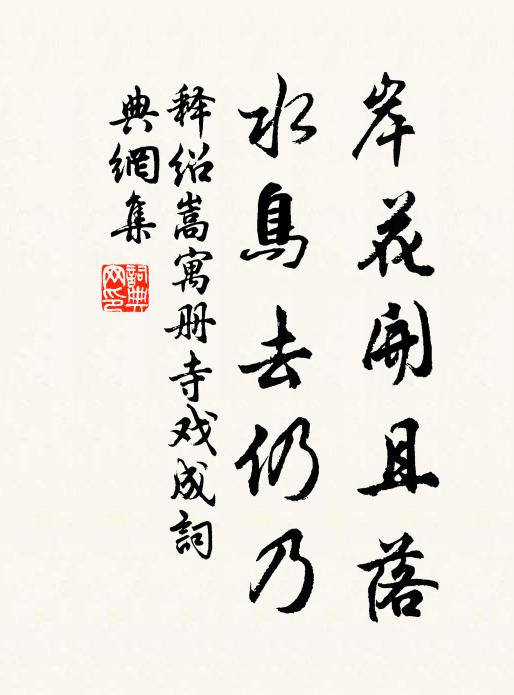 岸花開且落
水鳥去仍乃
释绍嵩寓册寺戏成詞
典網集
詞典网印